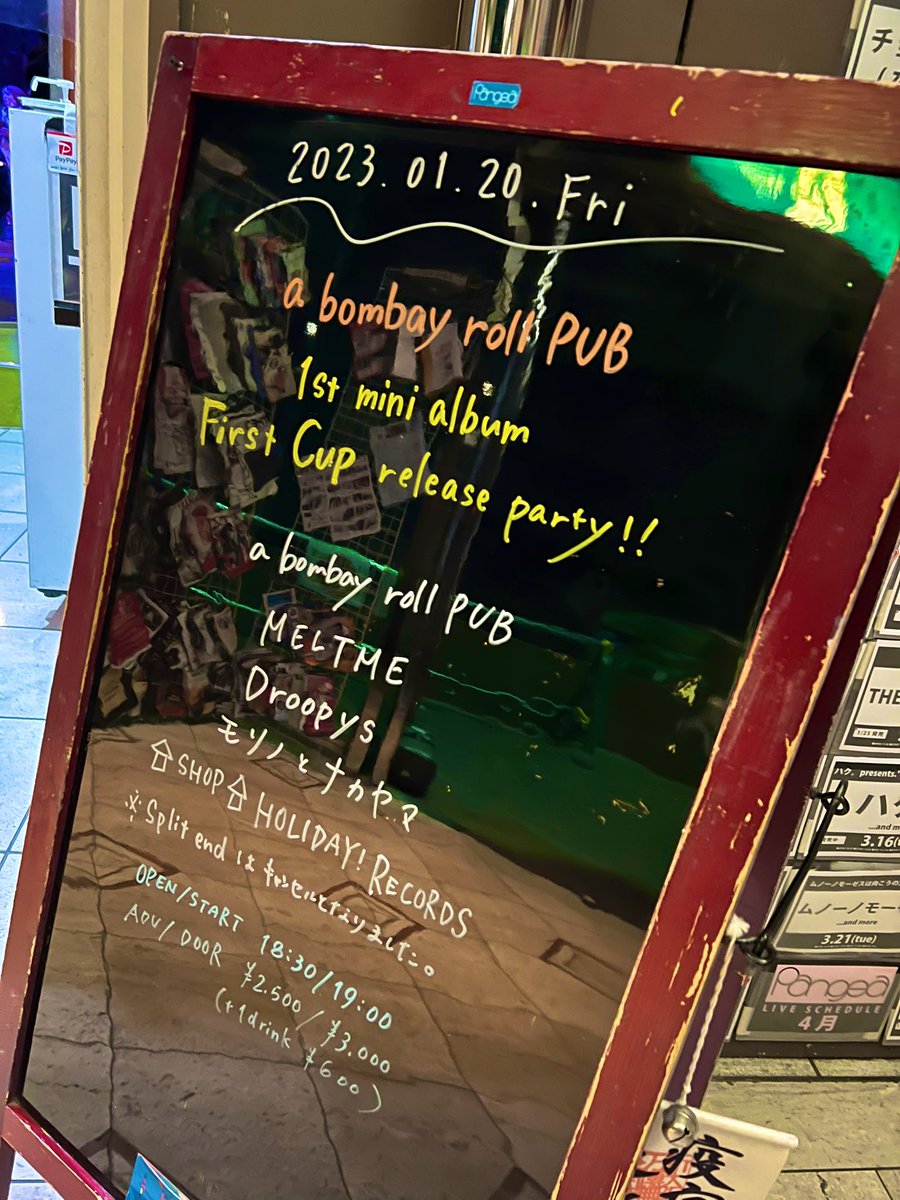 Pangea
2023.01.20.Fri
a bombay roll PUB
1st mini album
First Cup release party!!
a bombay roll PUB
MELTME
Droopys
モリノとナカヤマ
SHOP HOLIDAY! RECORDS
※Split end はキャンセルとなりました。
OPEN/START 18:30/19:00
ADV/DOOR ¥2.500/¥3.000
(+1drink ¥600)
PayPay
チ
THE
1/25 発売
ハク。presents.
ハ
...and m
3.16
ムノーノモーゼスは向こうの
ムノーノモー
...and more
3.21(tue)
Pangea
LIVE SCHEDULE
4月
疫